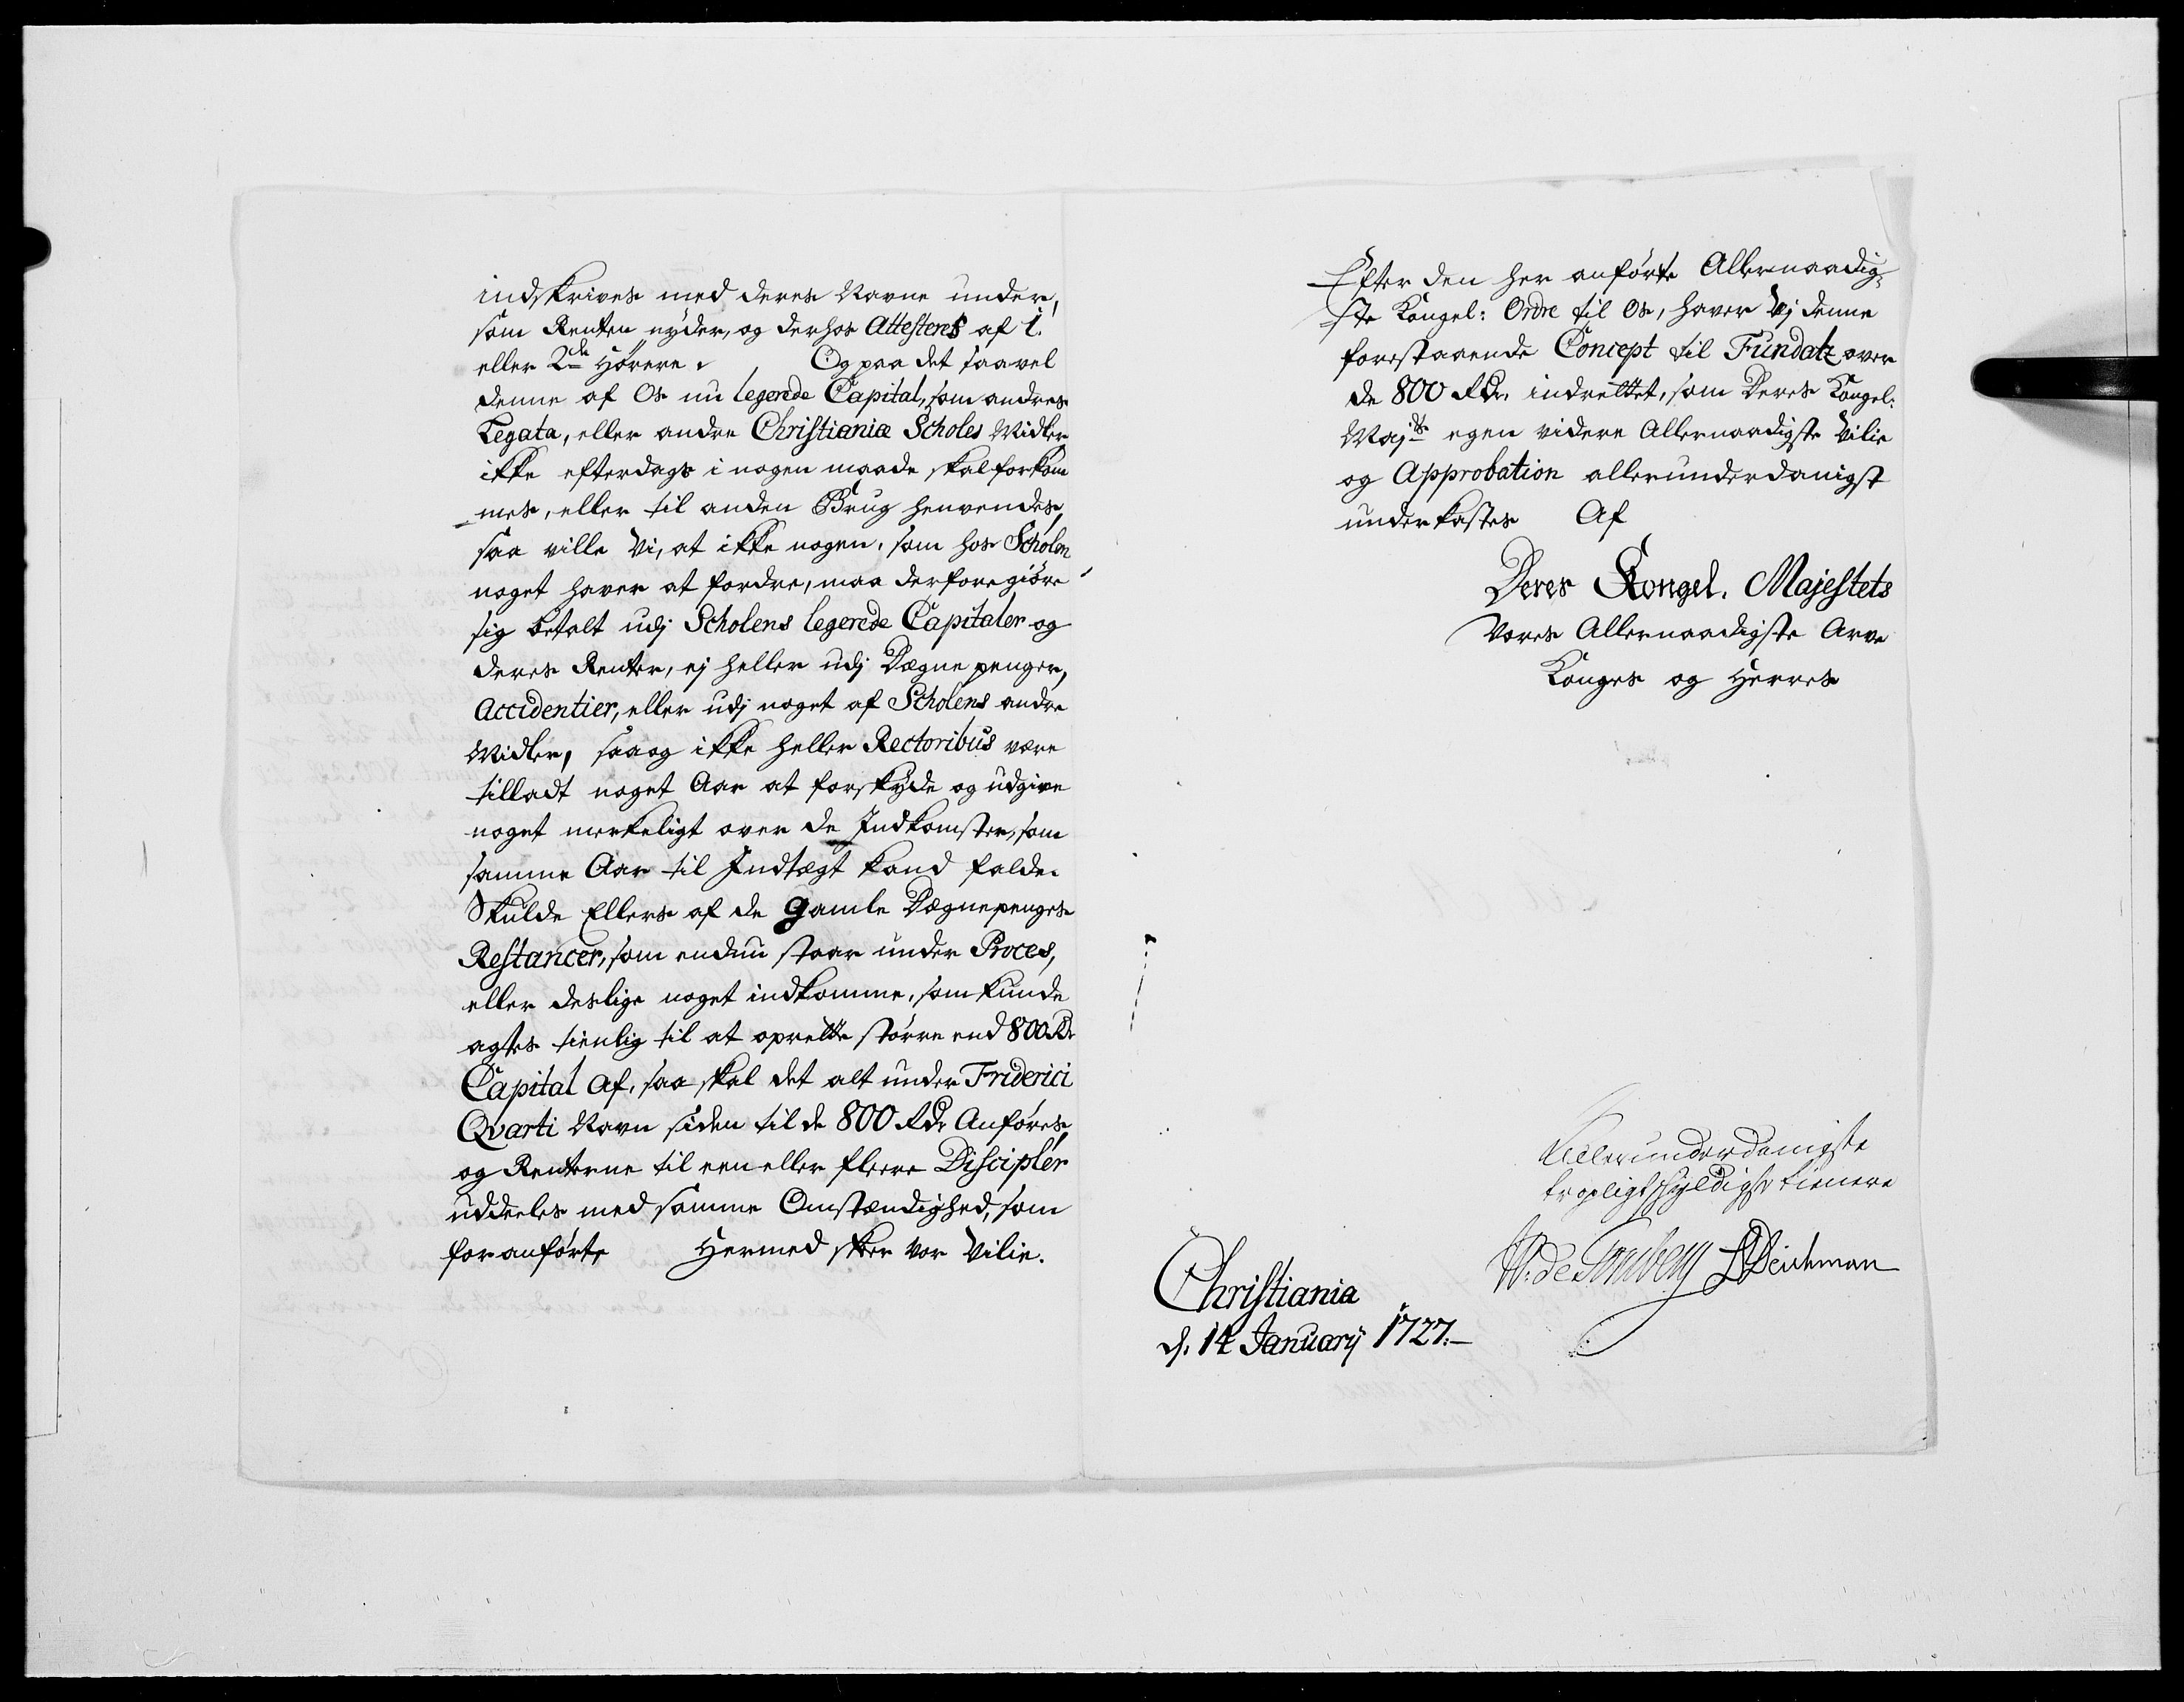 indskrives med deres Navne under,
som Renten nyder, og derhos Attesteret af 1.
eller 2de Hørere. Og paa det saavel
denne af Os nu legerede Capital, som andres
Legata, eller andre Christianiæ Scholes Midler
ikke efterdags i nogen maade skal forkom
mes, eller til anden Brug henvendes,
saa ville Vi, at ikke nogen, som hos Scholen
noget haver at fordre, maa derfore giøre
sig betalt udj Scholens legerede Capitaler og
deres Renter, ej heller udj Dægne penger,
Accidentier, eller udj noget af Scholens andre
Midler, saa og ikke heller Rectoribus være
tilladt noget Aar at forskyde og udgive
noget merkeligt over de Indkomster, som
samme Aar til Indtægt kand falde.
Skulde Ellers af de gamle Dægnepenges
Restancer, som endnu staar under Proces,
eller deslige noget indkomme, som kunde
agtes tienlig til at oprette større end 800 Rdr
Capital af, saa skal det alt under Friderici
Qvarti Navn siden til de 800 Rdr Anføres,
og Renterne til een eller fleere Discipler
uddeeles med samme Omstændighed, som
for anførte Hermed skeer vor Vilie.
Efter den her anførte Allernaadig-
ste Kongel: Ordre til Os, haver Vj denne
forestaaende Concept til Fundatz over
de 800 Rdr. indrettet, som Deres Kongel:
Majts egen videre Allernaadigste Vilie
og Approbation allerunderdanigst
underkastes Af
Deres Kongel. Majestets
Vores Allernaadigste Arve
Konges og Herres
Allerunderdanigste
troepligtskyldigste tienere
W: de Tonsberg BDeichman
Christiania
d. 14 Januarij 1727.